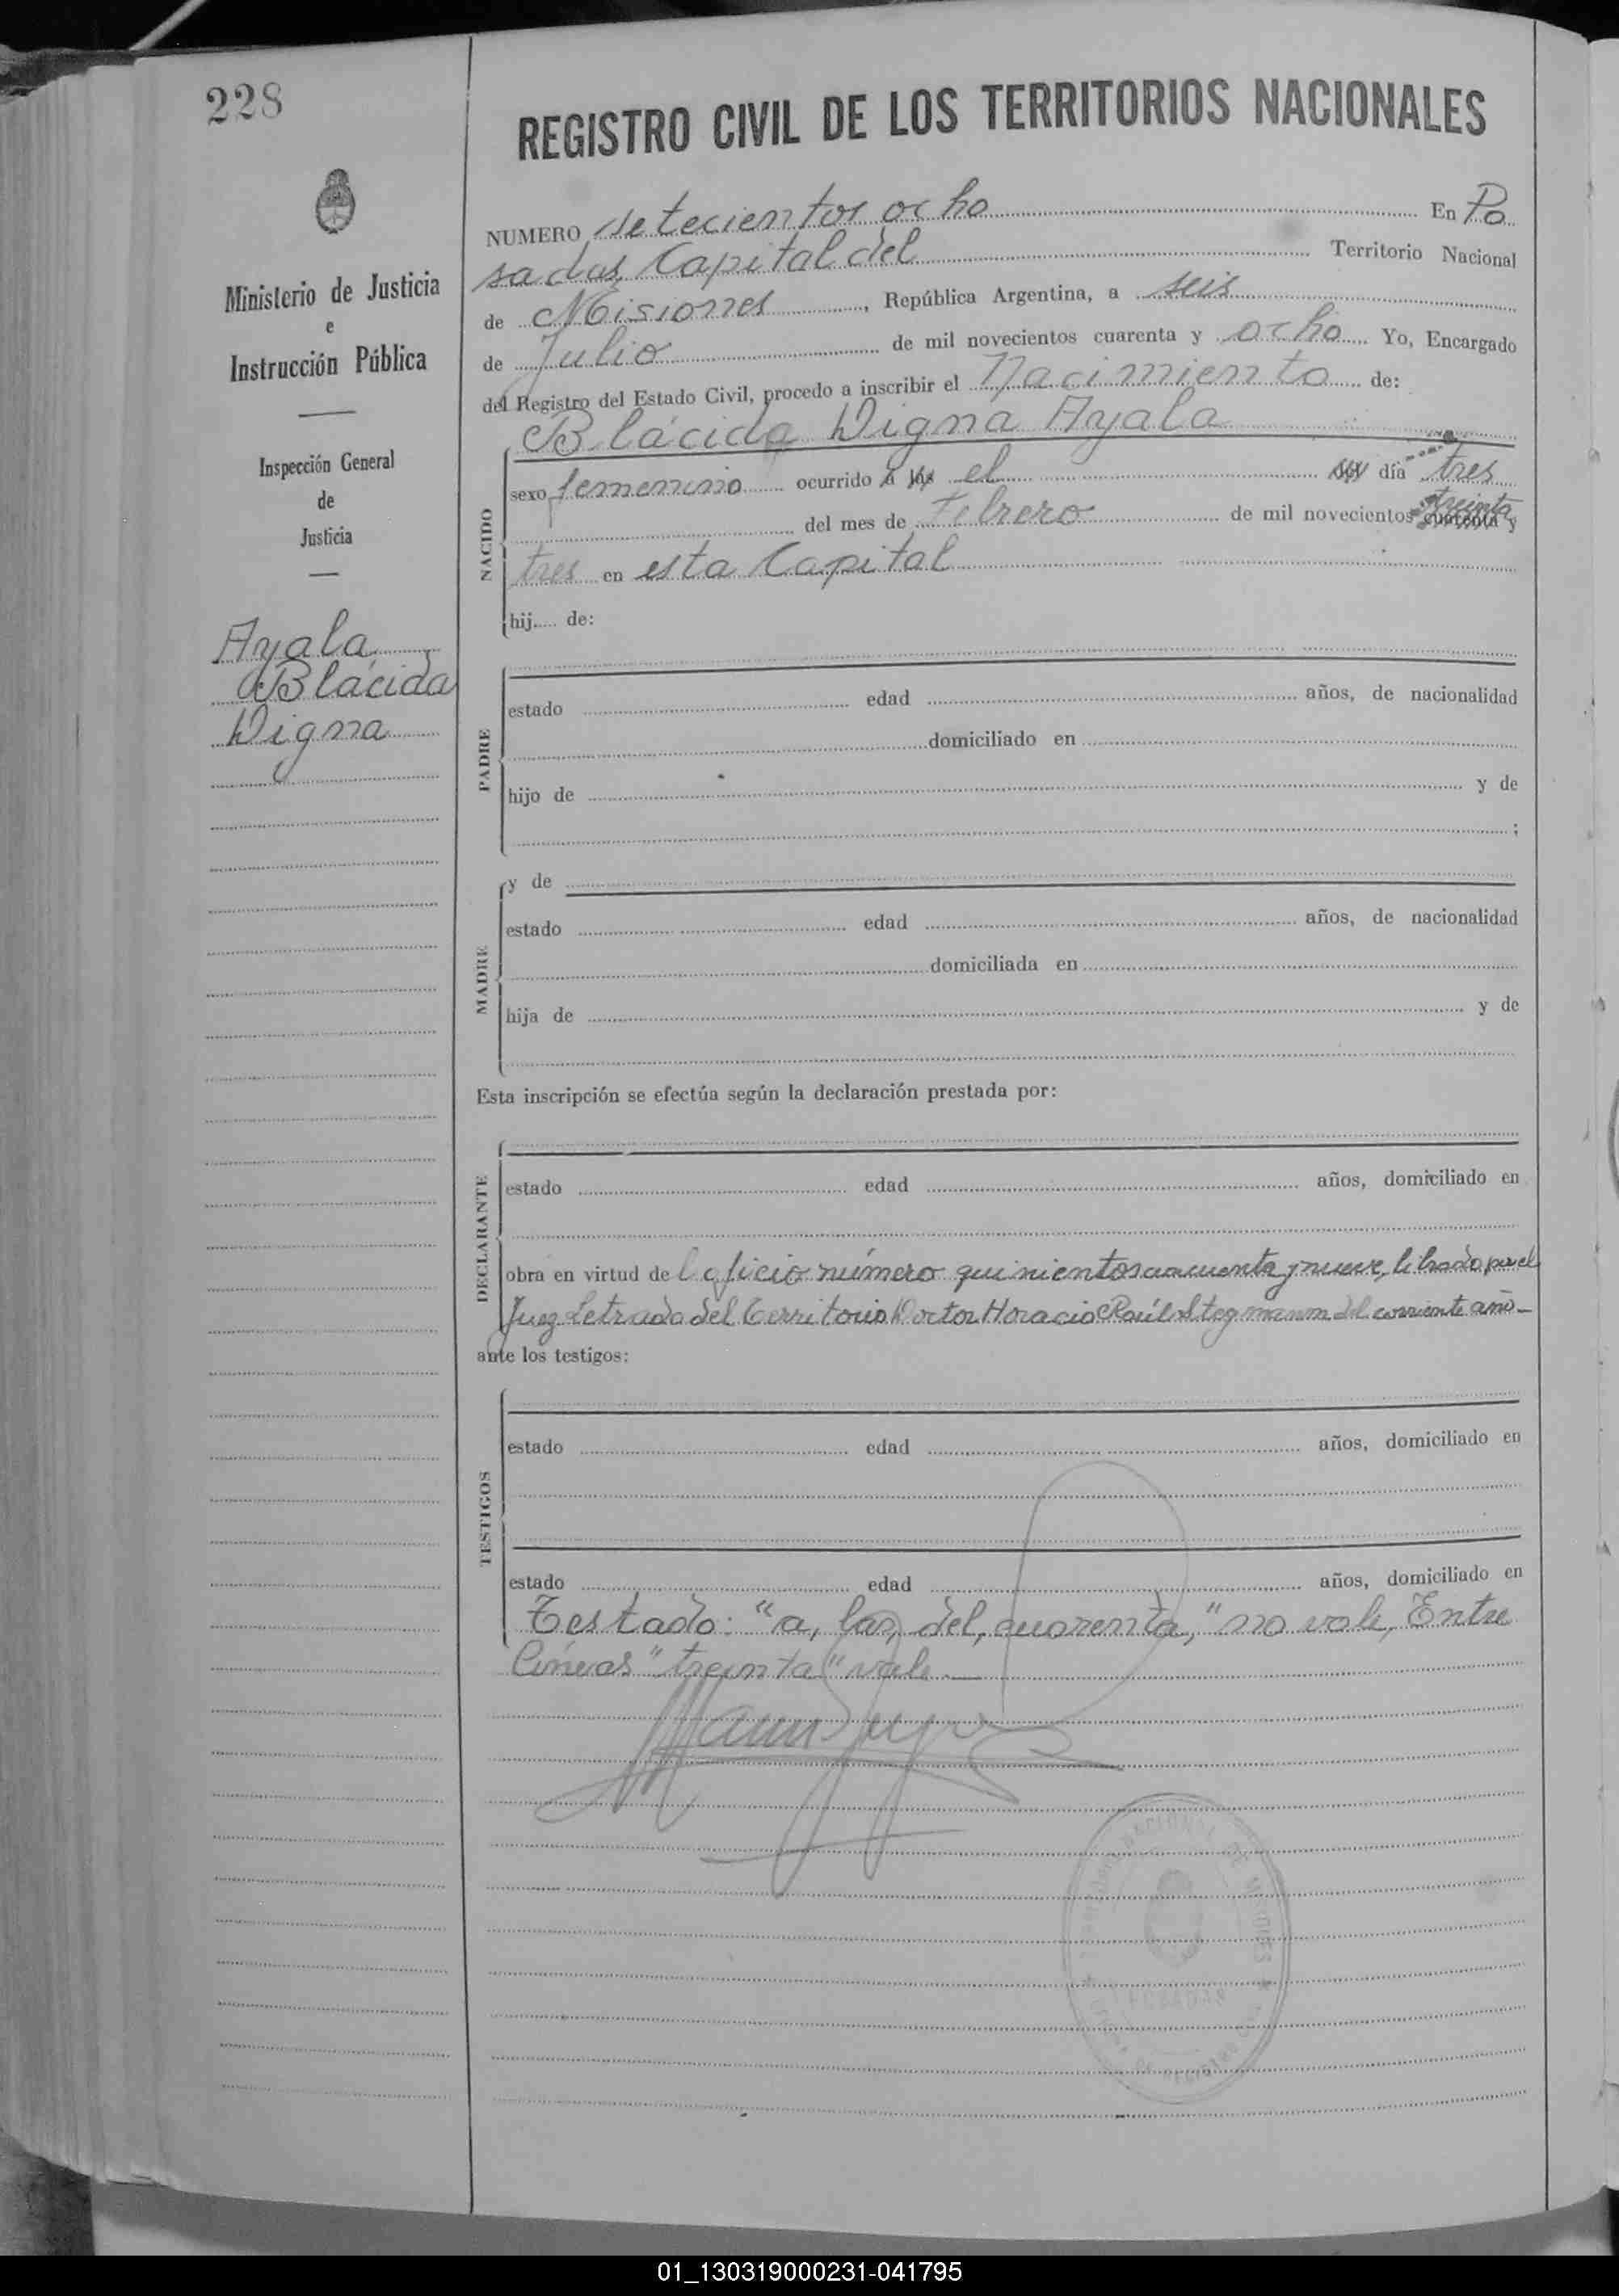 228
REGISTRO CIVIL DE LOS TERRITORIOS NACIONALES
Ministerio de Justicia
e
Instrucción Pública
Inspección General
de
Justicia
Ayala
Blácida
Digna
NUMERO setecientos ocho En Po
sadas, Capital del Territorio Nacional
de Misiones, República Argentina, a seis
de Julio de mil novecientos cuarenta y ocho Yo, Encargado
del Registro del Estado Civil, procedo a inscribir el Nacimiento de:
Blácida Digna Ayala
NACIDO
sexo femenino ocurrido a las el del día tres
del mes de Febrero de mil novecientos treinta cuarenta y
tres en esta Capital
hij de:
PADRE
estado edad años, de nacionalidad
domiciliado en
hijo de y de
;
MADRE
y de
estado edad años, de nacionalidad
domiciliada en
hija de y de
Esta inscripción se efectúa según la declaración prestada por:
DECLARANTE
estado edad años, domiciliado en
obra en virtud del oficio número quinientos cincuenta y nueve, librado por el
Juez Letrado del Territorio Doctor Horacio Raúl Stegmann del corriente año-
ante los testigos:
TESTIGOS
estado edad años, domiciliado en
estado edad años, domiciliado en
Testado: "a, las, del, cuarenta," no vale, Entre
líneas "treinta" vale.—
POSADAS
01_130319000231-041795